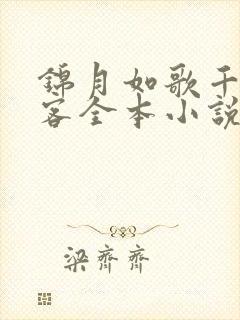 錦月如歌千
客全本小說
梁齊齊